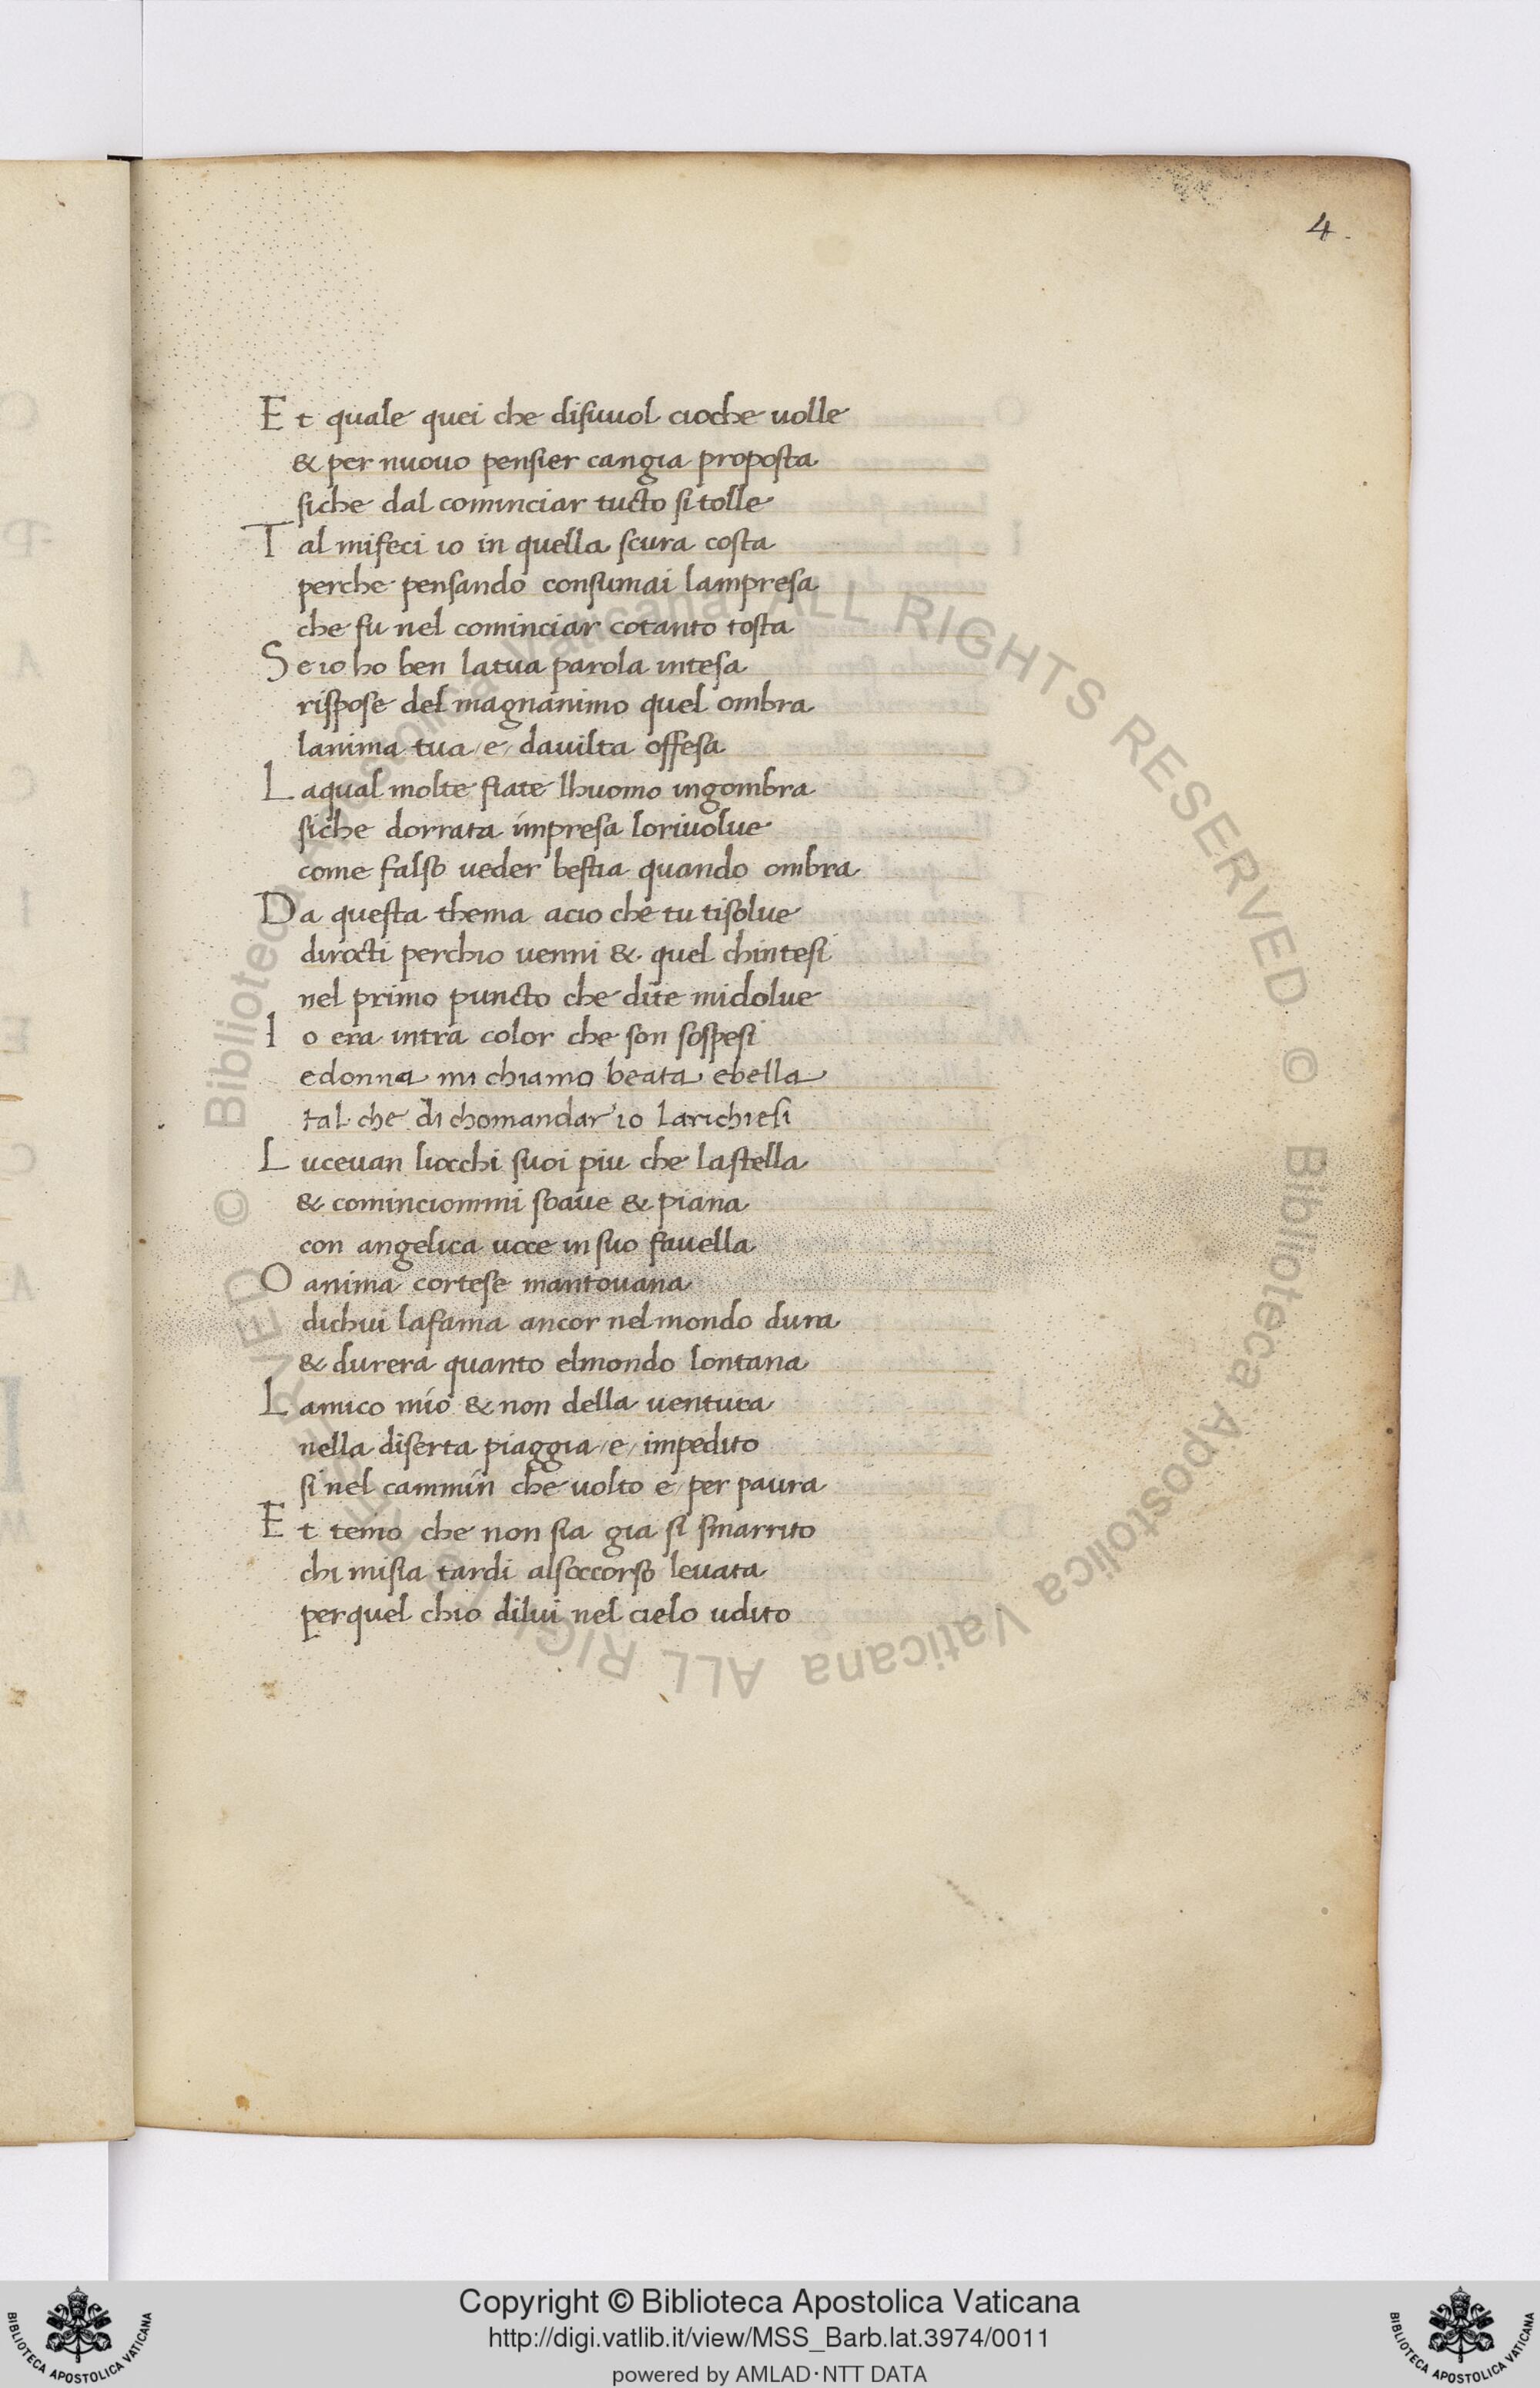 4.
Et quale quei che disuuol cioche uolle
& per nuouo pensier cangia proposta
siche dal cominciar tucto si tolle
Tal mifeci io in quella scura costa
perche pensando consumai lampresa
che fu nel cominciar cotanto tosta
Se io ho ben latua parola intesa
rispose del magnanimo quel ombra
lanima tua /e/ dauilta offesa
Laqual molte fiate lhuomo ingombra
siche dorrata impresa loriuolue
come falso ueder bestia quando ombra
Da questa thema acio che tu tisolue
dirocti perchio uenni & quel chintesi
nel primo puncto che dite midolue
Io era intra color che son sospesi
edonna mi chiamo beata ebella
tal che di chomandar io larichiesi
Luceuan liocchi suoi piu che lastella
& cominciommi soaue & piana
con angelica uoce in suo fauella
O anima cortese mantouana
dichui lafama ancor nel mondo dura
& durera quanto elmondo lontana
Lamico mio & non della uentura
nella diserta piaggia /e/ impedito
si nel cammin che uolto e per paura
Et temo che non sia gia si smarrito
chi misia tardi alsoccorso leuata
perquel chio dilui nel cielo udito
© Biblioteca Apostolica Vaticana ALL RIGHTS RESERVED © Biblioteca Apostolica Vaticana ALL RIGHTS RESERVED
Copyright © Biblioteca Apostolica Vaticana
http://digi.vatlib.it/view/MSS_Barb.lat.3974/0011
powered by AMLAD·NTT DATA
BIBLIOTECA APOSTOLICA VATICANA
BIBLIOTECA APOSTOLICA VATICANA